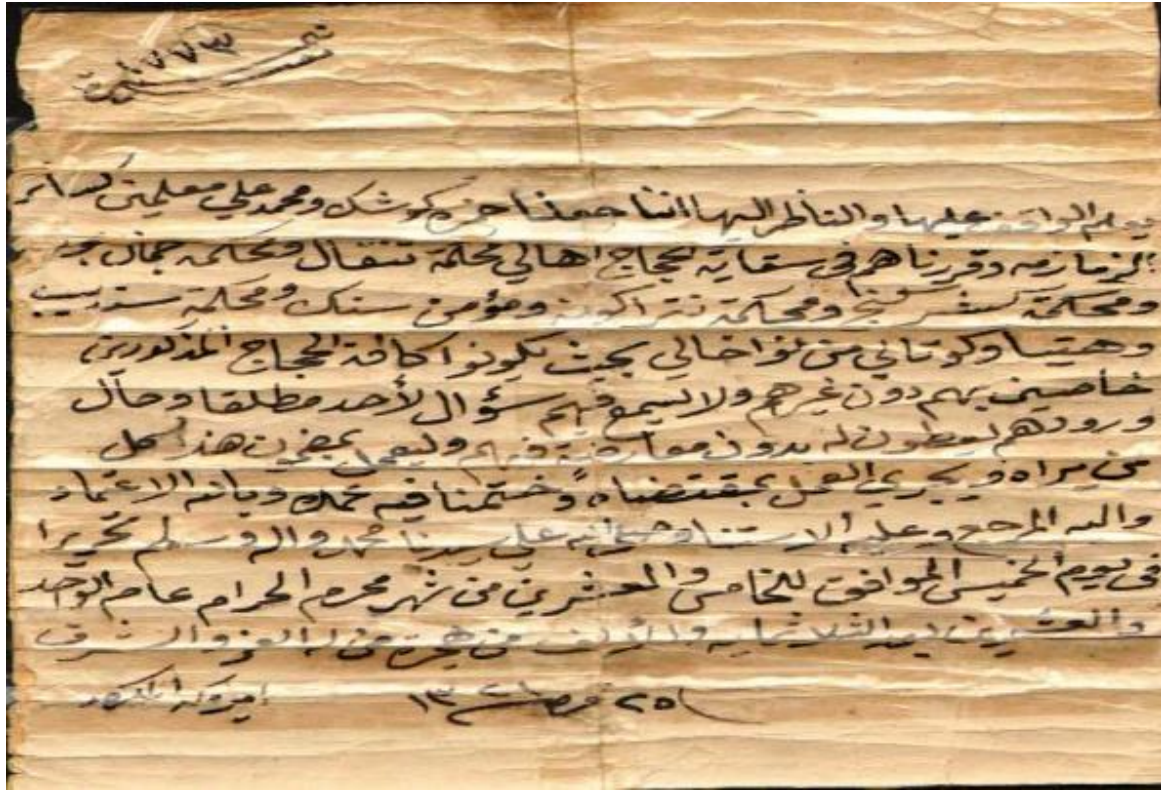 نمرة ١٧٧٣
يعلم الواقف عليها والناظر إليها اننا جعلنا حمزه كوشك ومحمد علي معلمين كسائر
الزمازمه وقررناهم في سقاية حجاج اهالي محلة تنقال ومحلة جمال
ومحلة ومحلة ومؤمن سنك ومحلة
وكوتاني من بحيث يكونوا كافة الحجاج المذكورين
خاصين بهم دون غيرهم ولا يسمع فيهم سؤال لأحد مطلقا وحال
ورودهم يعطون له بدون معارضة فيهم وليعمل بمضمون هذا كل
من يراه ويجري العمل بمقتضاه وختمنا فيه وبالله الاعتماد
واليه المرجع وعليه الاستناد وصلى الله على سيدنا محمد واله وسلم تحريرا
في يوم الخميس الموافق للخامس والعشرين من شهر محرم الحرام عام الواحد
والعشرين بعد الثلاثمايه والألف من هجرة من له العز والشرف
٢٥ م سنة ١٣٢١ امير مكة المكرمة